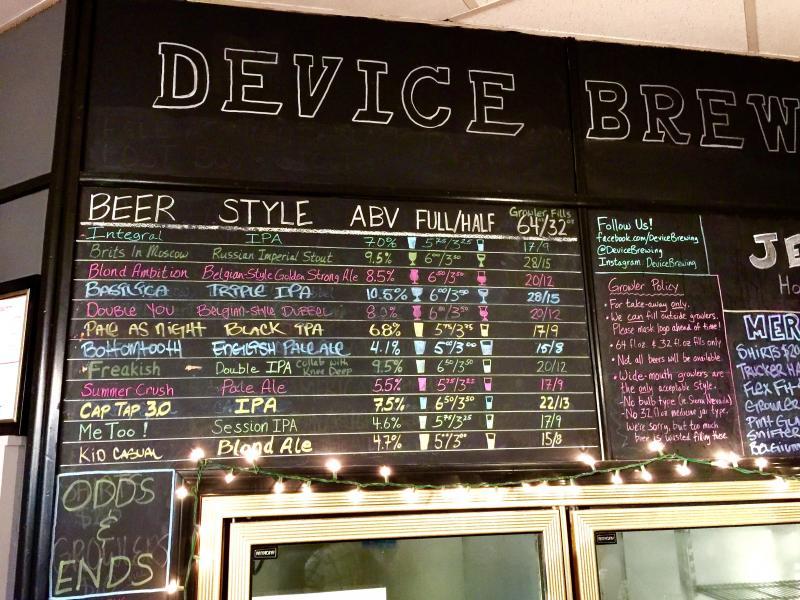 DEVICE BREW
BEER STYLE ABV FULL/HALF Growler Fills 64/32
Integral IPA 7.0% 5⁷⁵/3²⁵ 17/9
Brits In Moscow Russian Imperial Stout 9.5% 28/15
Blond Ambition Belgian-Style Golden Strong Ale 8.5% 6⁵⁰/3⁵⁰ 20/12
Basilica Triple IPA 10.5% 6⁰⁰/3⁵⁰ 28/15
Double You Belgian-Style Dubbel 20/12
Pale As Night Black IPA 6.8% 17/9
Bottomtooth English Pale Ale 4.1% 5⁰⁰/3⁰⁰ 15/8
Freakish Double IPA collab with Knee Deep 9.5% 6⁵⁰/3⁵⁰ 20/12
Summer Crush Pale Ale 5.5% 5⁷⁵/3²⁵ 17/9
Cap Tap 3.0 IPA 7.5% 6⁵⁰/3⁵⁰ 22/13
Me Too! Session IPA 4.6% 5⁷⁵/3²⁵ 17/9
Kid Casual Blond Ale 4.7% 5⁰⁰/3⁰⁰ 15/8
ODDS
&
ENDS
Follow Us!
facebook.com/DeviceBrewing
@DeviceBrewing
Instagram DeviceBrewing
Growler Policy
• For take-away only.
• We can fill outside growlers.
Please mask logo ahead of time!
• 64 fl oz. & 32 fl oz fills only
• Not all beers will be available
• Wide-mouth growlers are
the only acceptable style.
- No bulb type (ie. Sierra Nevada)
- No 32 fl oz medicine jar type.
We're sorry, but too much
beer is wasted filling these.
JE
Ho
MER
SHIRTS $20
TRUCKER HA
FLEX FIT
GROWLER
PINT GL
SNIFTER
BELGIUM